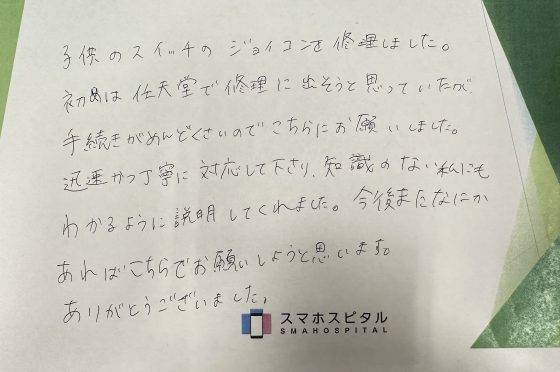 子供のスイッチのジョイコンを修理しました。
初めは任天堂で修理に出そうと思っていたが、
手続きがめんどくさいのでこちらにお願いしました。
迅速かつ丁寧に対応して下さり、知識のない私にも
わかるように説明してくれました。今後またなにか
あればこちらでお願いしようと思います。
ありがとうございました。
スマホスピタル
SMAHOSPITAL